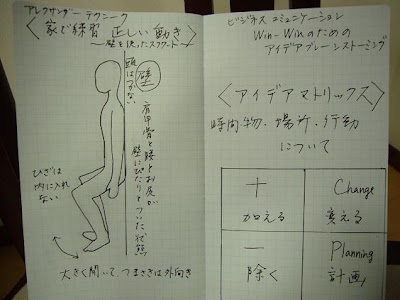 アレクサンダーテクニーク
〈家で練習 正しい動き〉
〜壁を使ったスクワット〜
頭はつかない
壁
肩甲骨と腰とお尻が
壁にぴたりとついた状態
ひざは
内に入れ
ない
大きく開いて、つまさきは外向き
ビジネスコミュニケーション
Win-Winのための
アイデアブレーンストーミング
〈アイデアマトリックス〉
時間・物・場所・行動
について
＋
加える
Change
変える
−
除く
Planning
計画